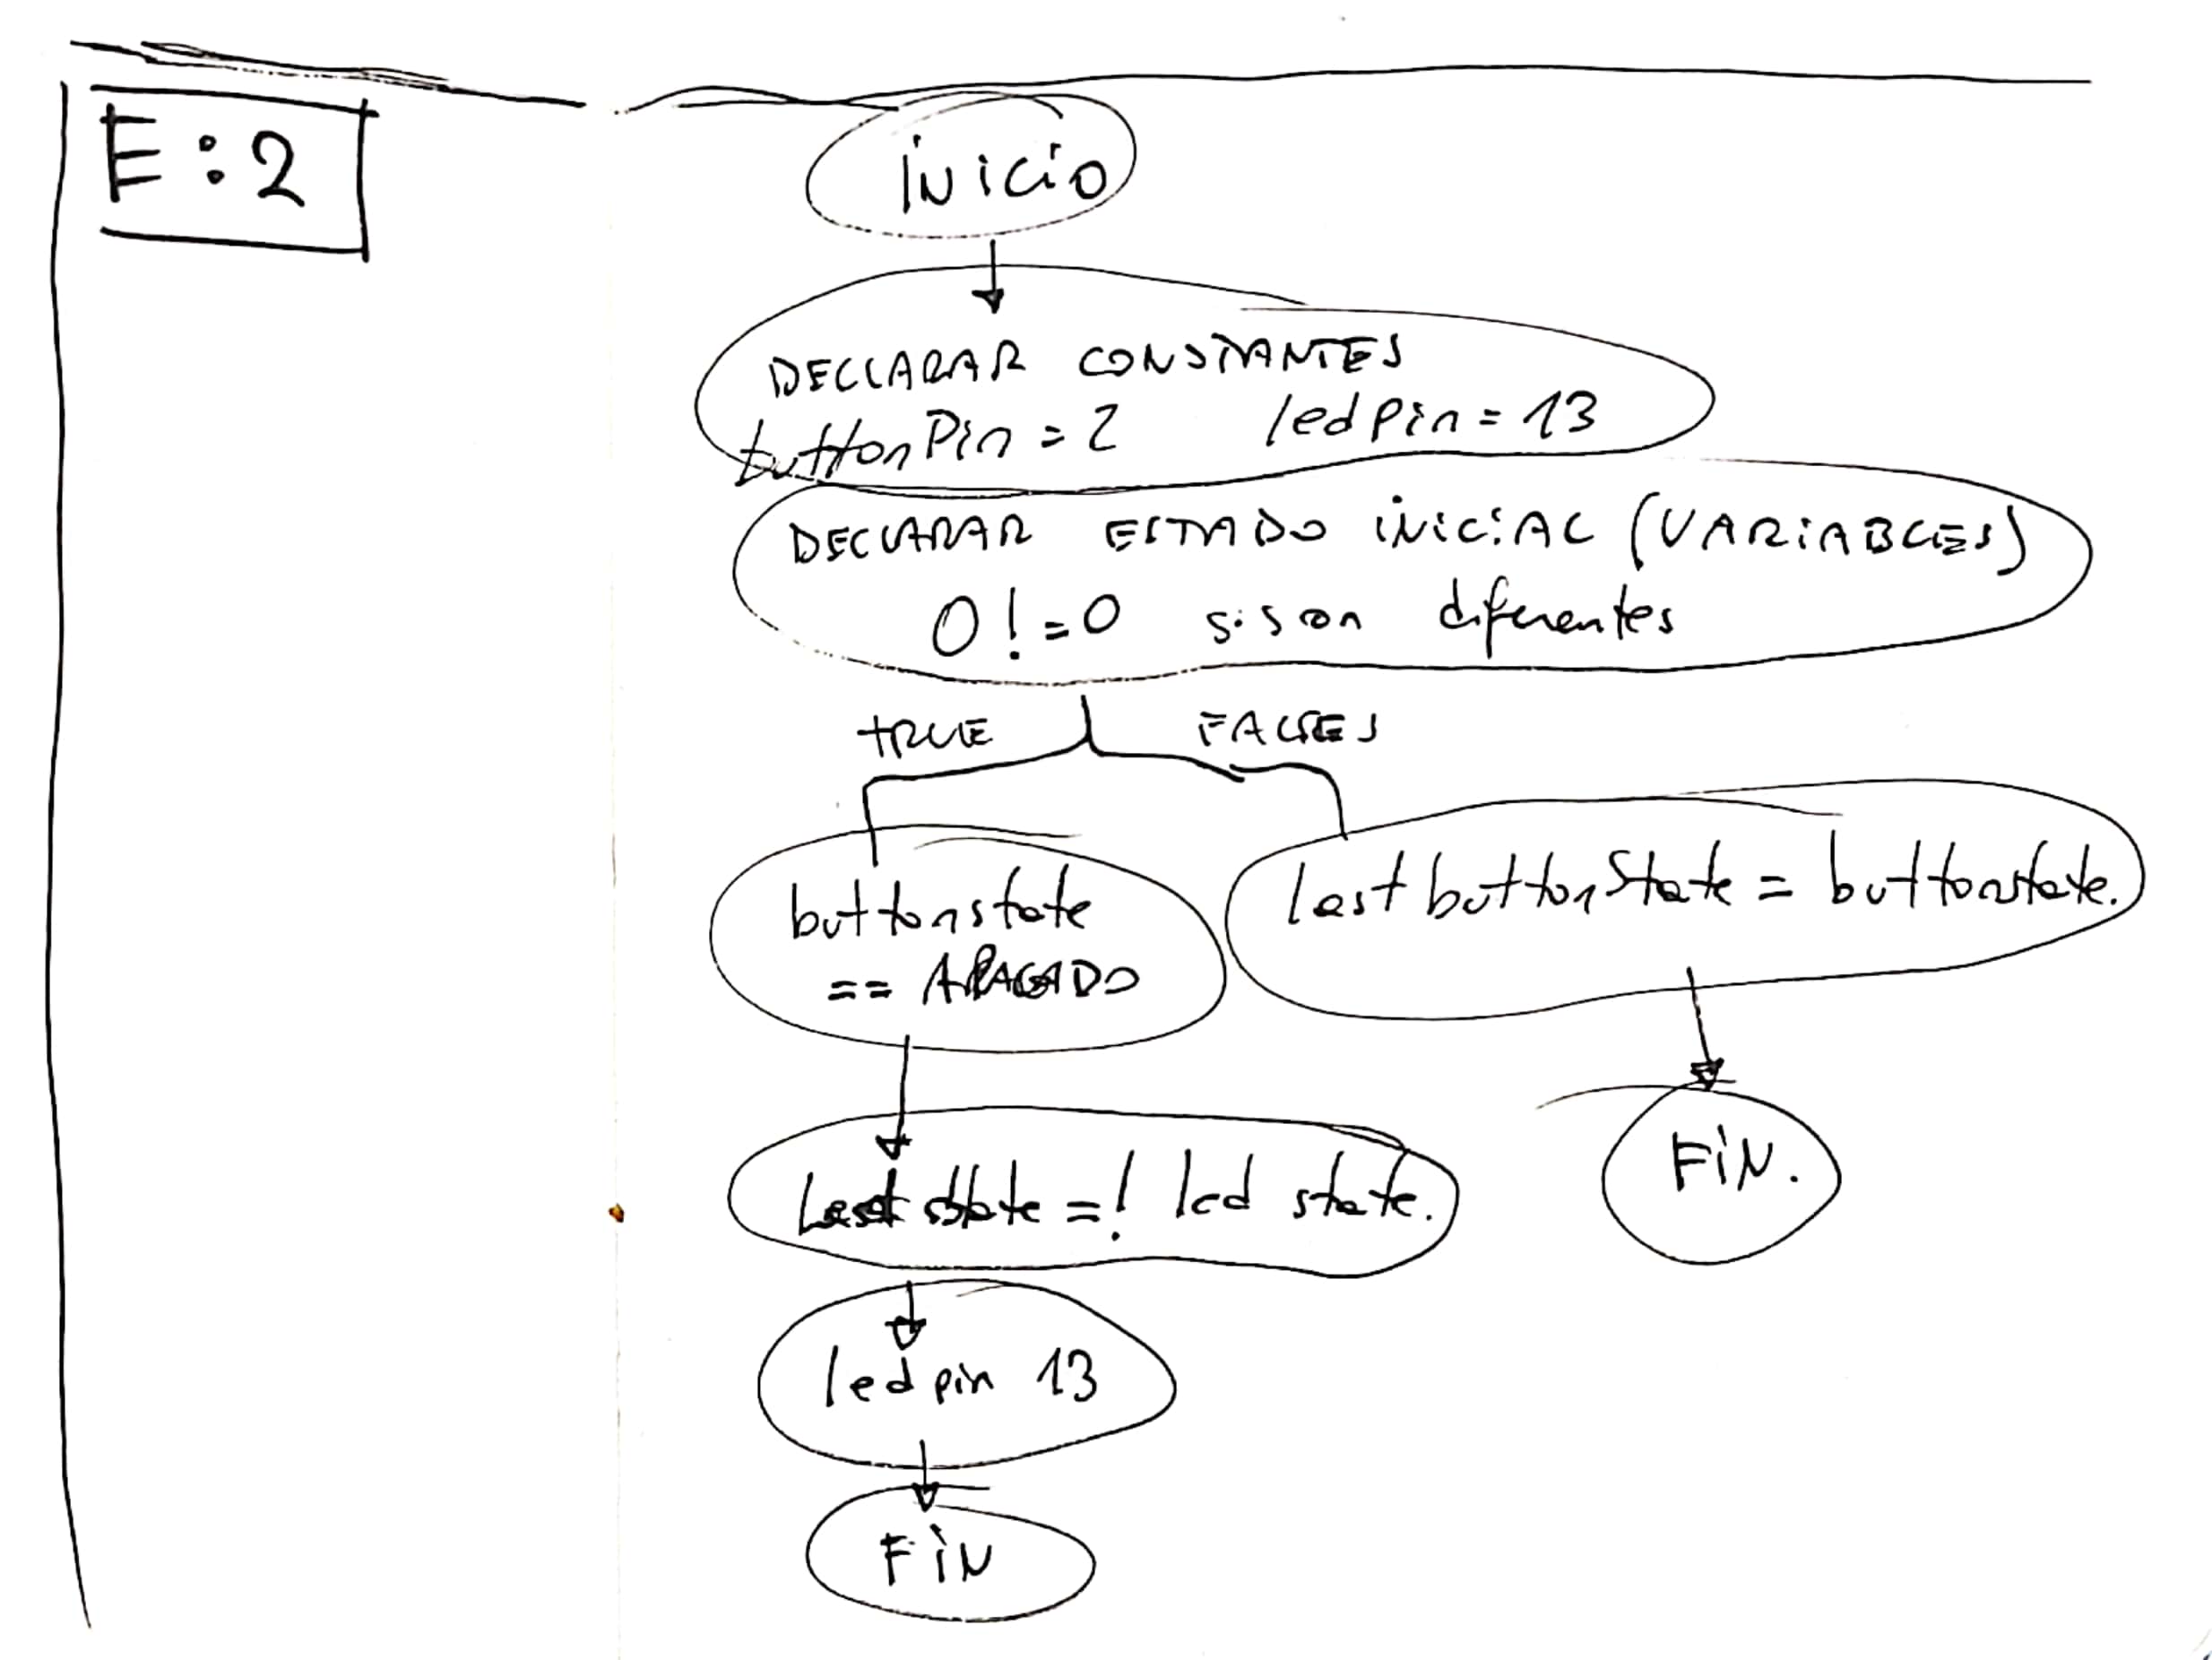 E:2
inicio
DECLARAR CONSTANTES
buttonPin = 2 ledpin = 13
DECLARAR ESTADO iNiCiAL (VARiABLES)
0 != 0 si son diferentes
tRUE FALSES
buttonstate
== APAGADO
lastbuttonState = buttonstate.
state =! led state.
FiN.
led pin 13
FiN